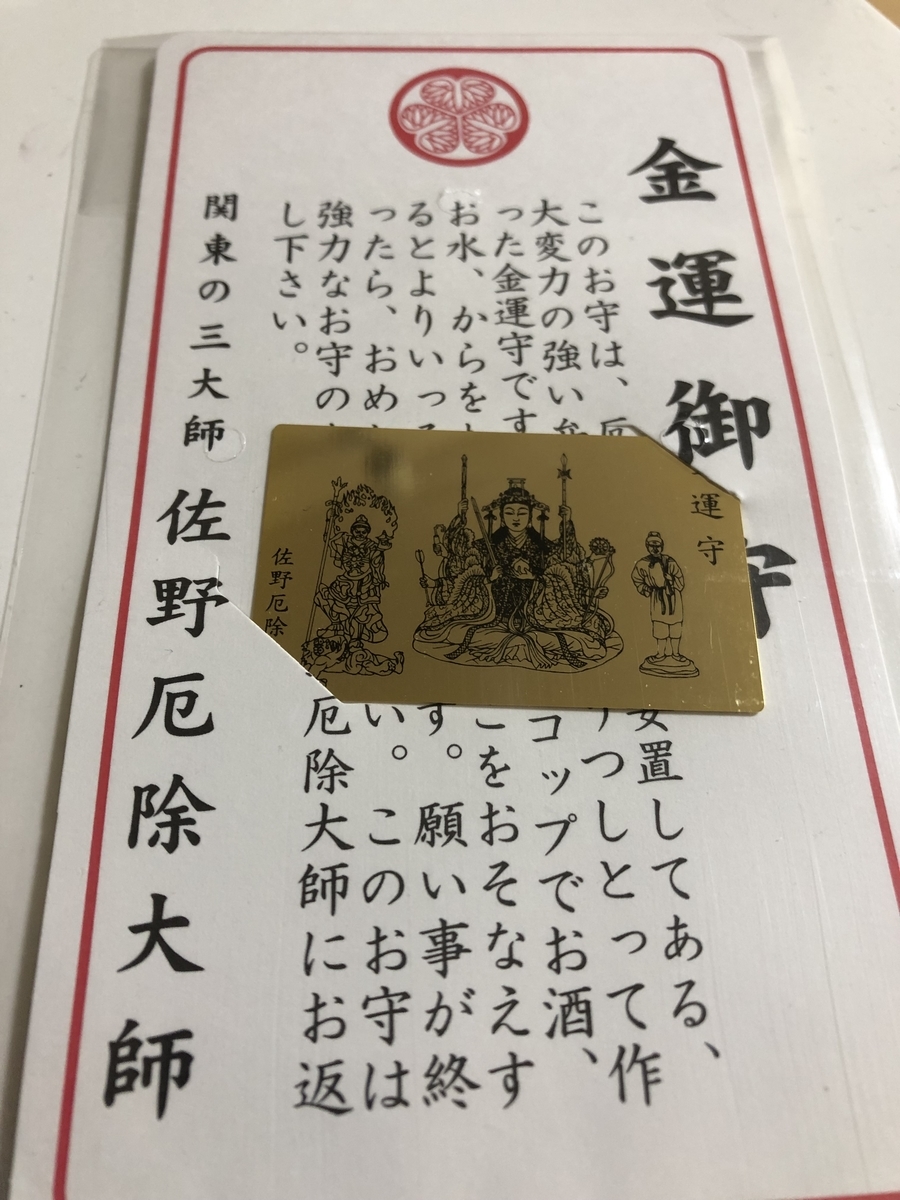 金運御守
このお守は、厄 安置してある、
大変力の強い うつしとって作
った金運守です コップでお酒、
お水、からを こをおそなえす
るとよりいっ す。願い事が終
ったら、おめ い。このお守は
強力なお守の 厄除大師にお返
し下さい。
関東の三大師 佐野厄除大師
運守
佐野厄除